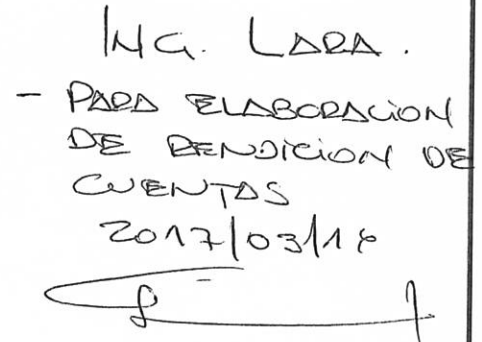 ING. LARA.
- PARA ELABORACION
DE RENDICION DE
CUENTAS
2017/03/16